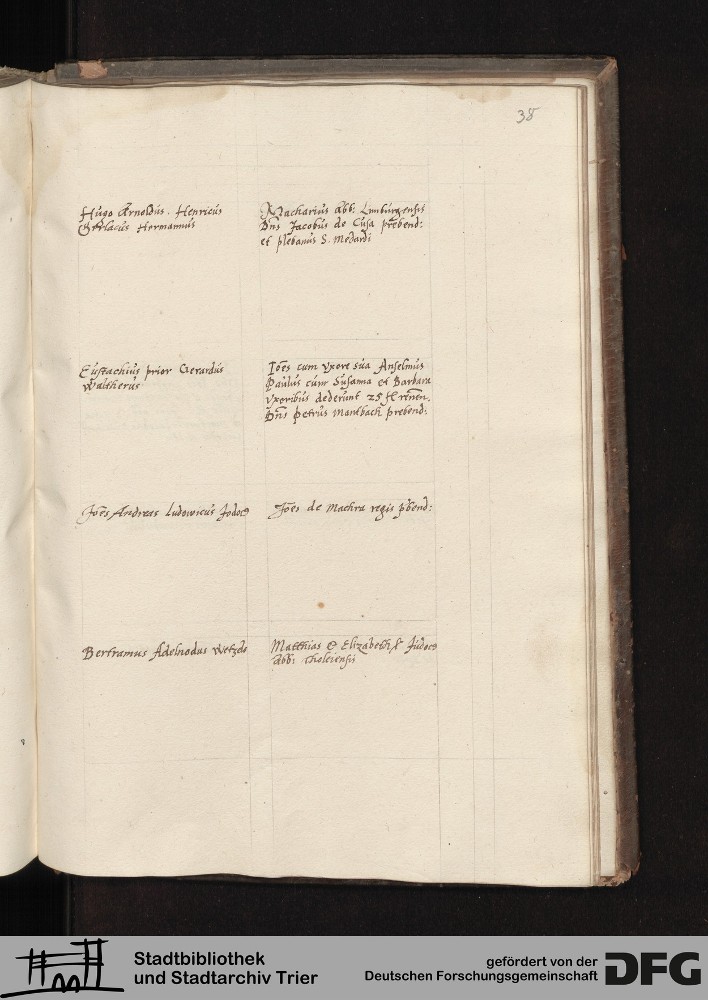 38
Hugo Arnoldus. Henricus
Gerlacus Hermannus
Macharius abb: Limburgensis
Dns Jacobus de Cusa prebend:
et plebanus S. Medardi
Eustachius prior Gerardus
Waltherus
Joes cum uxore sua Anselmus
Paulus cum Susanna et Barbara
uxoribus dederunt 25 fl renen.
Dns Petrus Mantbach prebend:
Joes Andreas Ludowicus Jodocus
Joes de Machra regis pbend:
Bertramus Adelnodus
Matthias & Elizabeth & Judocus
abbi tholeiensis
Stadtbibliothek
und Stadtarchiv Trier
gefördert von der
Deutschen Forschungsgemeinschaft
DFG